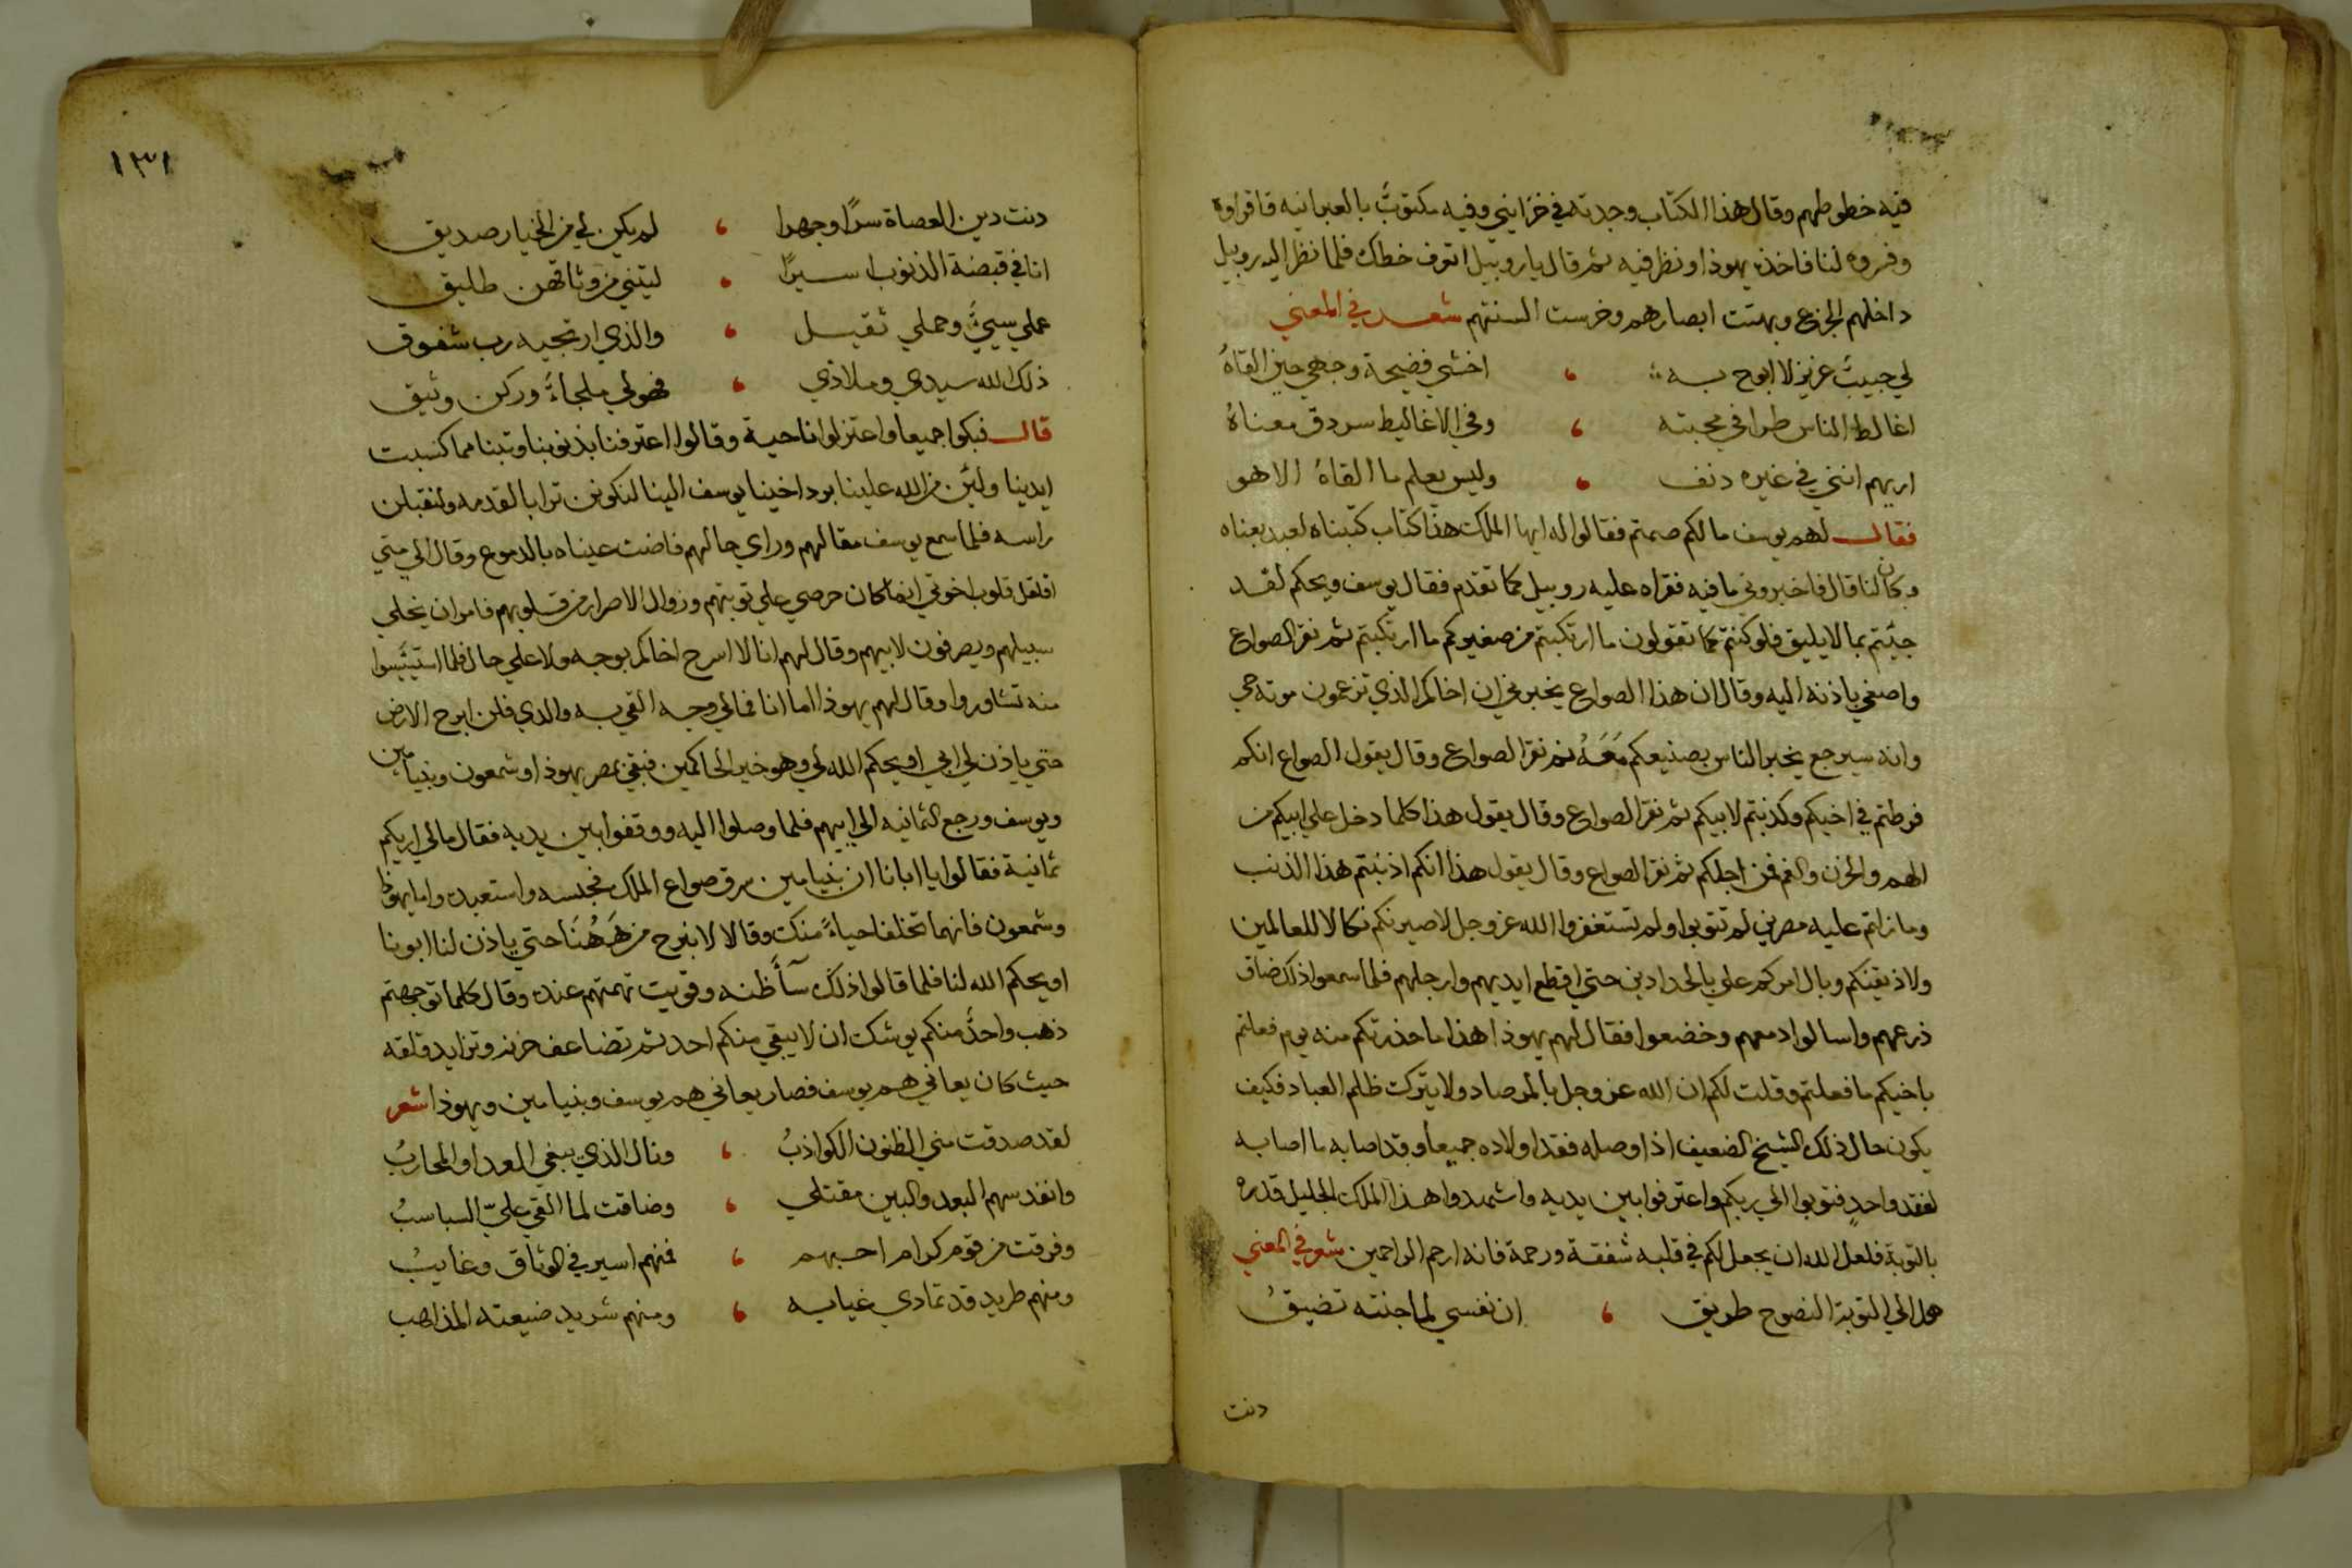 فيه خطوطهم وقال هذا الكتاب وجدته في خزايني وفيه مكتوبٌ بالعبرانيه فاقراوه
وفسروه لنا فاخذه يهوذا ونظر فيه ثم قال ياروبيل اتعرف خطك فلما نظر اليه روبيل
داخلهم الجزع وبهتت ابصارهم وخرست السنتهم شعر في المعني
لي حبيبٌ عزيز لا ابوح به ، اخشي فضيحة وجهي حين القاهُ
اغالط الناس طرا في محبته ، وفي الاغاليط سر دق معناهُ
اريهم انني في غيره دنف ، وليس يعلم ما القاهُ الا هو
فقال لهم يوسف مالكم صمتم فقالوا له ايها الملك هذا كتاب كتبناه لعبد بعناه
وكان لنا قال فاخبروني ما فيه فقراه عليه روبيل كما تقدم فقال يوسف ويحكم لقد
جيتم بما لا يليق فلو كنتم كما تقولون ما ارتكبتم من صغيركم ما ارتكبتم ثم نقر الصواع
واصغي باذنه اليه وقال ان هذا الصواع يخبرني ان اخاكم الذي تزعمون موته حي
وانه سيرجع يخبر الناس بصنيعكم مَعَهُ ثم نقر الصواع وقال يقول الصواع انكم
فرطتم في اخيكم وكذبتم لابيكم ثم نقر الصواع وقال يقول هذا كلما دخل علي ابيكم من
الهم والحزن والغم فمن اجلكم ثم نقر الصواع وقال يقول هذا انكم اذنبتم هذا الذنب
وما زلتم عليه مصرين لم تتوبوا ولم تستغفروا الله عز وجل لاصيرنكم نكالا للعالمين
ولاذيقنكم وبال امركم علي بالحدادين حتي اقطع ايديهم وارجلهم فلما سمعوا ذلك ضاق
ذرعهم واسالوا دمعهم وخضعوا فقال لهم يهوذا هذا ما حذرتكم منه يوم فعلتم
باخيكم ما فعلتم وقلت لكم ان الله عز وجل بالمرصاد ولا يترك ظلم العباد فكيف
يكون حال ذلك الشيخ الضعيف اذا وصله فقد اولاده جميعاً وقد اصابه ما اصابه
لفقد واحدٍ فتوبوا الي ربكم واعترفوا بين يديه واشهدوا هذا الملك الجليل قدره
بالتوبة فلعل الله ان يجعل لكم في قلبه شفقة ورحمة فانه ارحم الراحمين شعر في المعني
هل الي التوبة النصوح طريق ، ان نفسي لما جنته تضيقُ
دنت
١٣١
دنت دين العصاة سرًا وجهرا ، لم يكن لي من الخيار صديق
انا في قبضة الذنوب اسيرًا ، ليتني من وثاقهن طليق
عملي سيئٌ وحملي ثقيل ، والذي ارتجيه رب شفوق
ذلك الله سيدي وملاذي ، فهو لي ملجأءٌ وركن وثيق
قال فبكوا جميعا واعتزلوا ناحية وقالوا اعترفنا بذنوبنا وتبنا مما كسبت
ايدينا ولئن من الله علينا برد اخينا يوسف الينا لنكونن ترابا لقدمه ولنقبلن
راسه فلما سمع يوسف مقالهم وراي حالهم فاضت عيناه بالدموع وقال الي متي
اقلقل قلوب اخوتي انما كان حرصي علي توبتهم وزوال الاصرار من قلوبهم فامر ان يخلي
سبيلهم ويصرفون لابيهم وقال لهم انا لا اسرح اخاكم بوجه ولا علي حال فلما استيئسوا
منه تشاوروا وقال لهم يهوذا اما انا فمالي وجه القي به والدي فلن ابرح الارض
حتي ياذن لي ابي او يحكم الله لي وهو خير الحاكمين فبقي بمصر يهوذا وشمعون وبنيامين
ويوسف ورجع الثمانيه الي ابيهم فلما وصلوا اليه ووقفوا بين يديه فقال مالي اريكم
ثمانية فقالوا يا ابانا ان بنيامين سرق صواع الملك فحبسه واستعبده واما يهوذا
وشمعون فانهما تخلفا حياءً منك وقالا لا نبرح من هَهُنَا حتي ياذن لنا ابونا
او يحكم الله لنا فلما قالوا ذلك سآءَ ظنه وقويت تهمتهم عنده وقال كلما توجهتم
ذهب واحدٌ منكم يوشك ان لا يبقي منكم احد ثم تضاعف حزنه وتزايد قلقه
حيث كان يعاني هم يوسف فصار يعاني هم يوسف وبنيامين ويهوذا شعر
لقد صدقت مني الظنون الكواذبُ ، ونال الذي يبغي العدا والمحاربُ
وانفد سهم البعد والبين مقتلي ، وضاقت لما القي عليّ السباسبُ
وفرقت من قوم كرام احبهم ، فمنهم اسير في الوثاق وغايبُ
ومنهم طريد قد تمادي غيابه ، ومنهم شريد ضيعته المذاهب